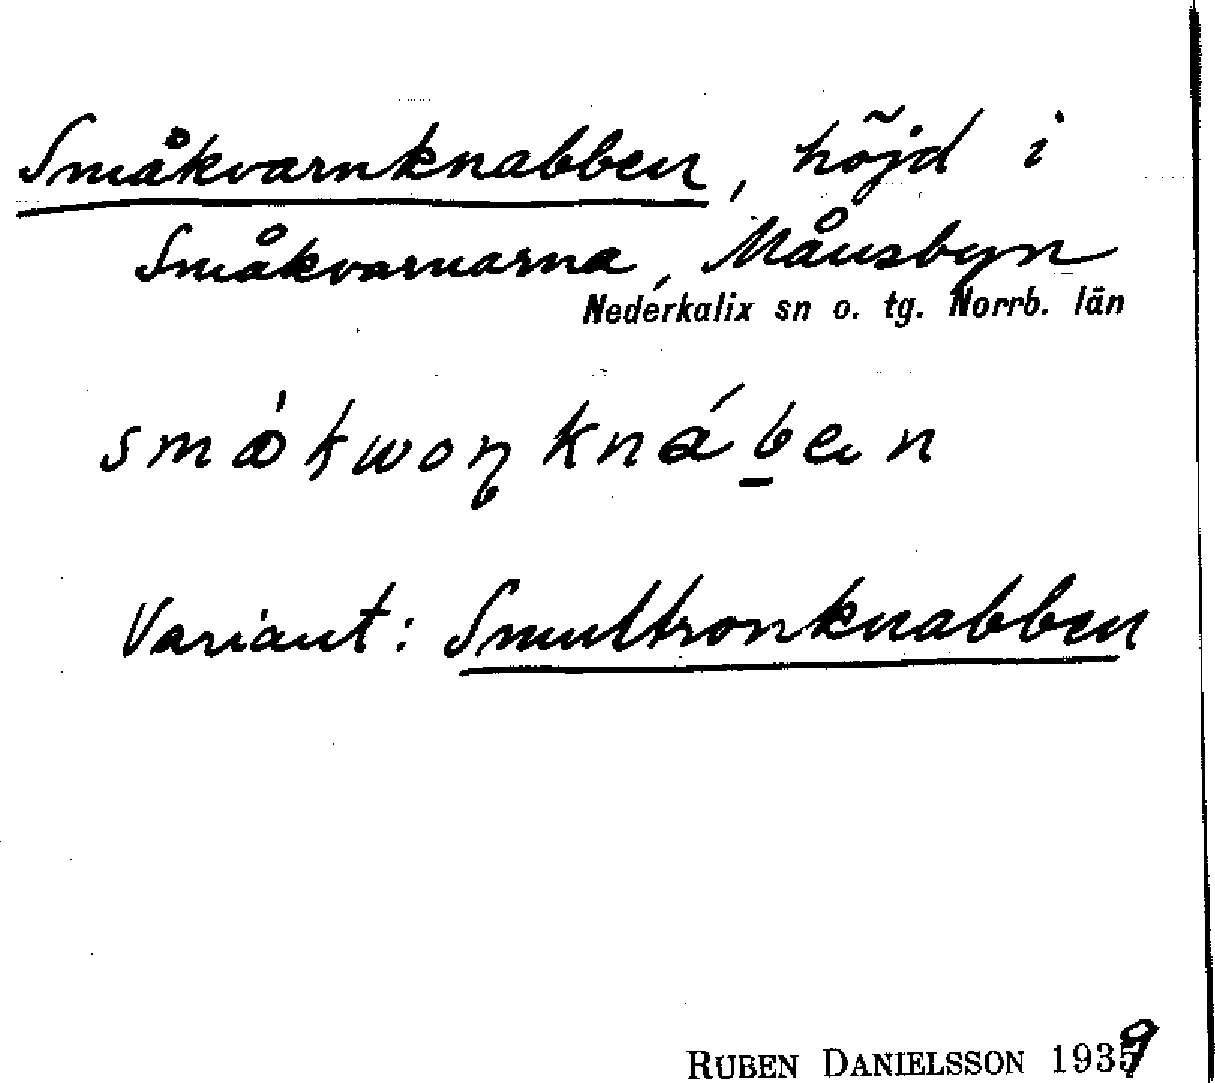 Småkvarnknabben, höjd i
Småkvarnarna, Månsbyn
Nederkalix sn o. tg. Norrb. län
Variant: Smultronknabben
RUBEN DANIELSSON 1939